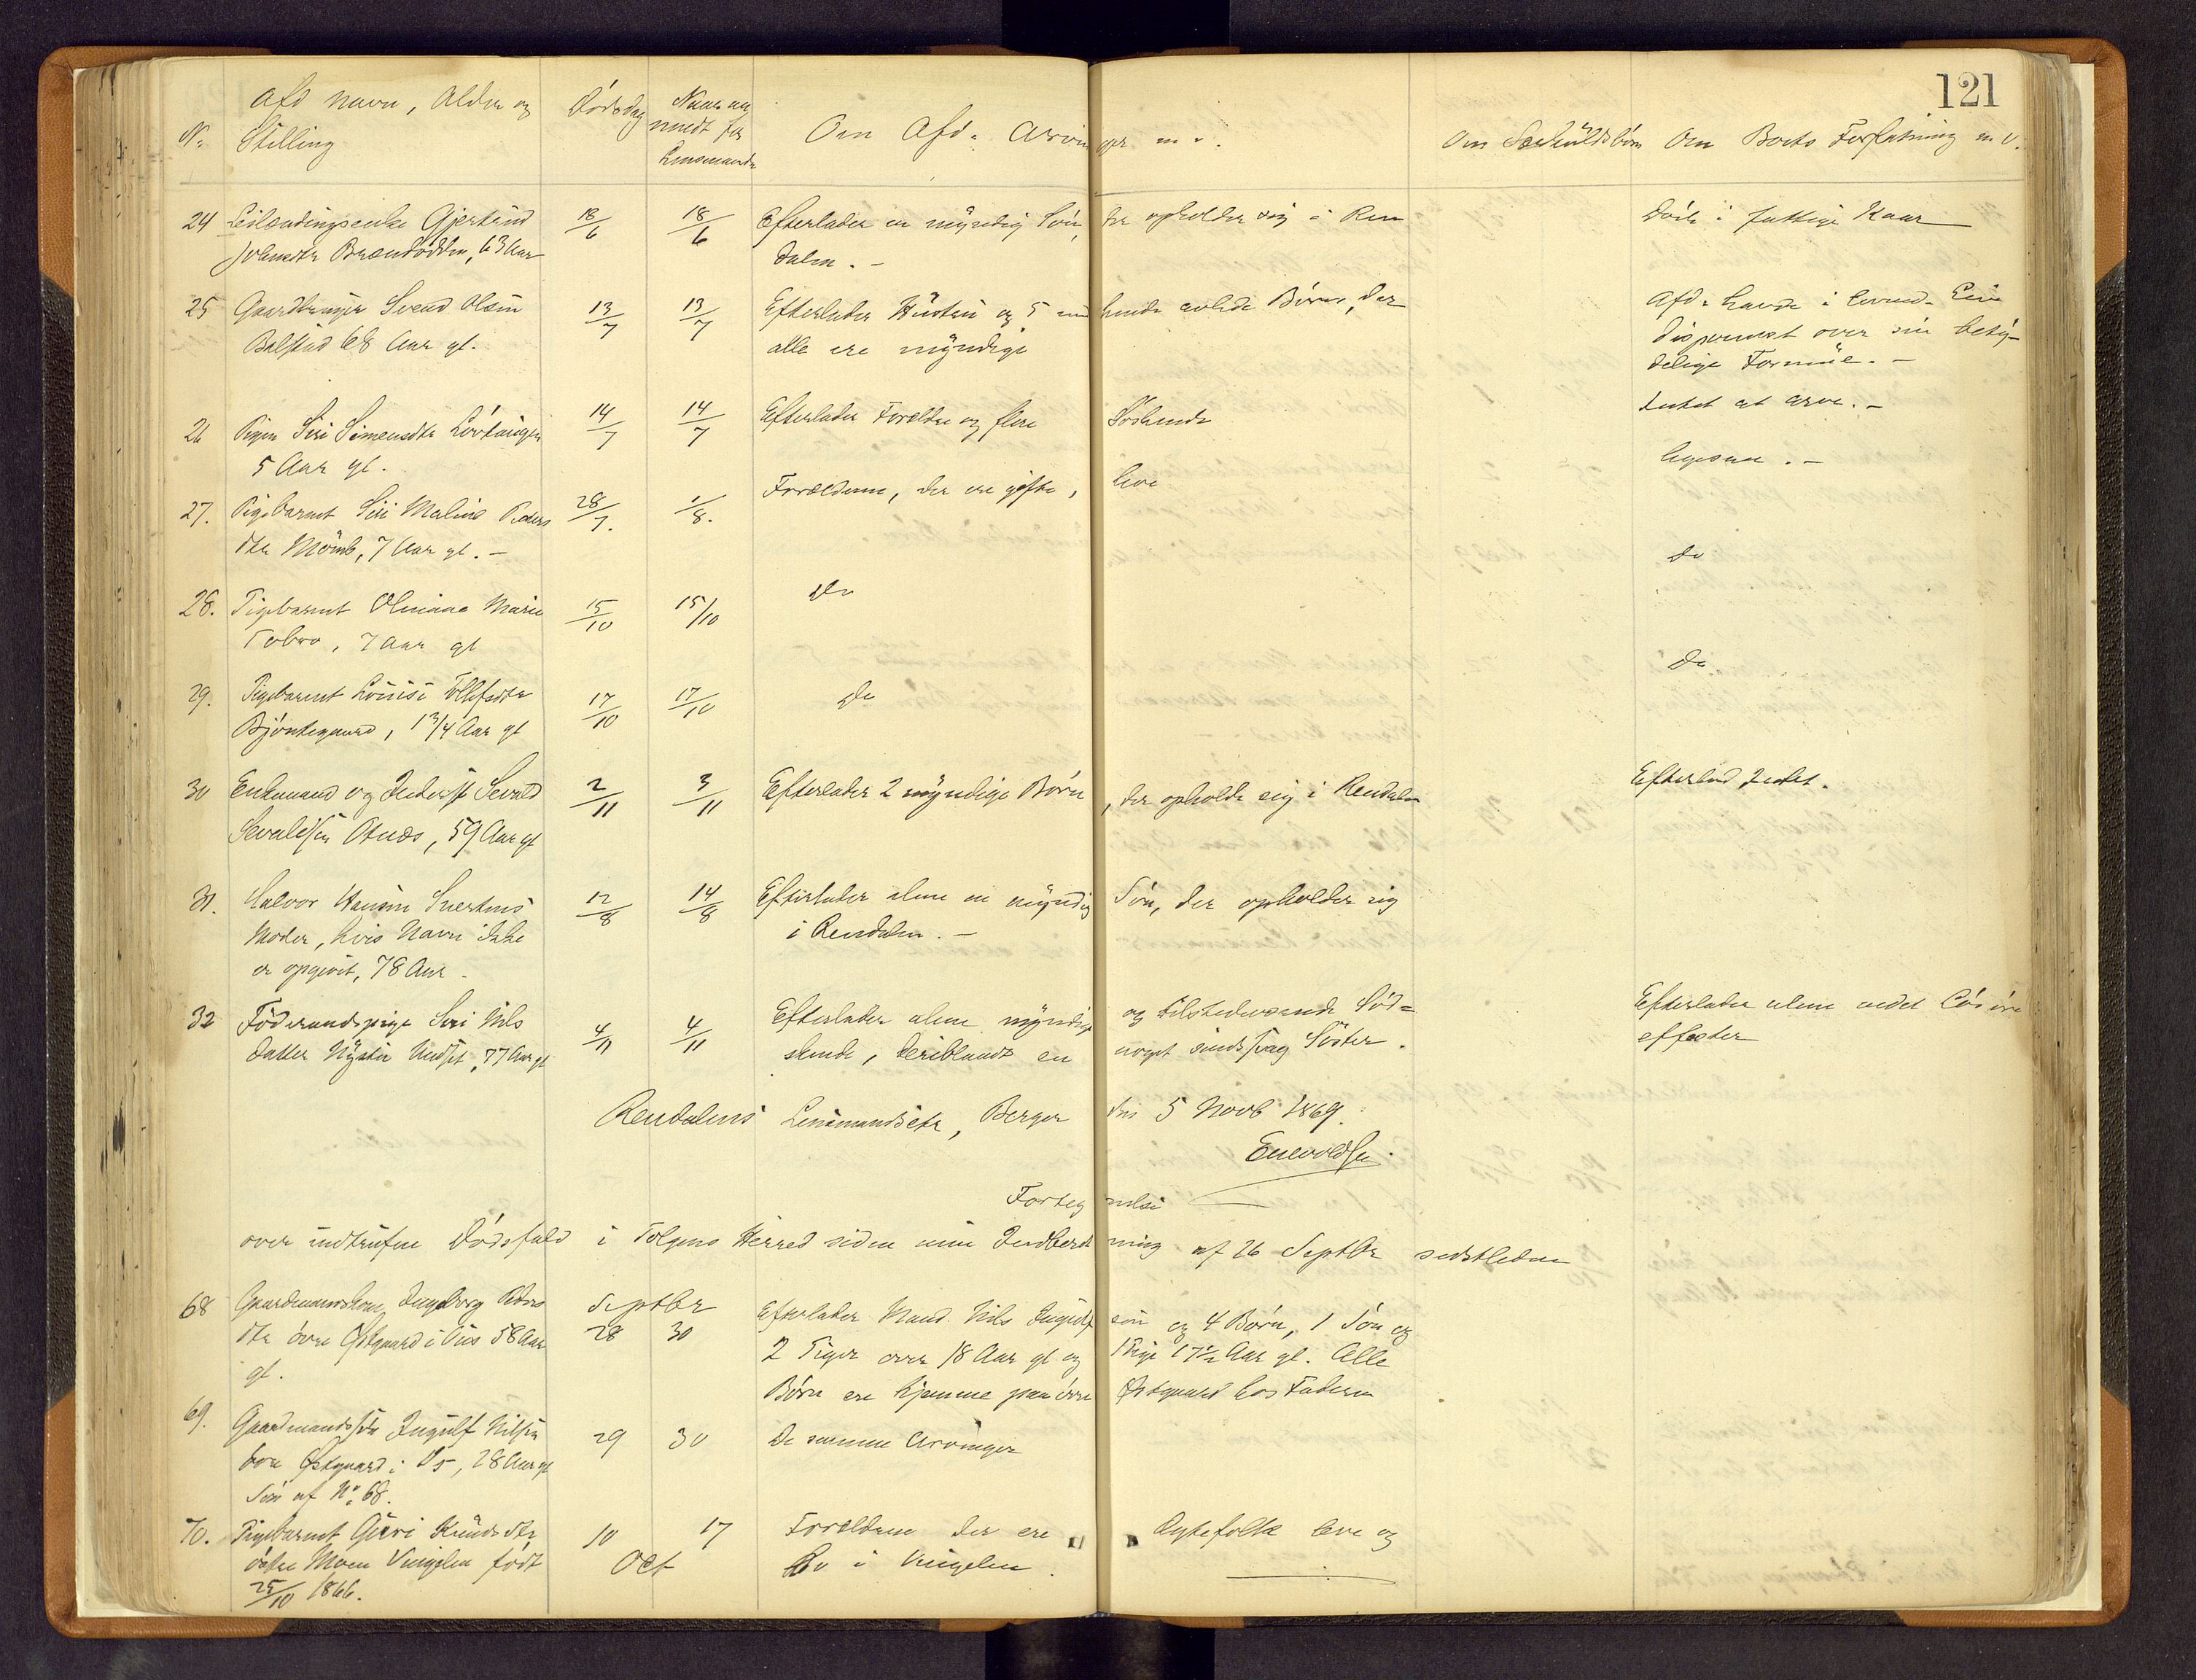 121
Afd Navn, Alder og Stilling
No
Dødsdag
Naar anmeldt for Lensmanden
Om Afd: Arvinger m. v.
Om Særkuldsbørn
Om Boets Forfatning m. v.
24 Leilændingsenke Gjertrud 18/6 18/6 Efterlader en myndig Søn, der opholder sig i Ren Døde i fattige Kaar
Johnsdtr Brændodden, 63 Aar dalen. -
25 Gaardbruger Svend Olsen 13/7 13/7 Efterlader Hustru og 5 med hende avlede Børn, der Afd: havde i levende Live
Balstad 68 Aar gl. alle ere myndige disponeret over sin bety-
delige Formue. -
26 Pigen Siri Simensdtr Løvhaugen 14/7 14/7 Efterlader Forældre og flere Søskende Intet at arve. -
5 Aar gl.
27. Pigebarnet Siri Maline Peders 28/7. 1/8. Forældrene, der ere gifte, leve ligesaa. -
dtr Mömb, 7 Aar gl. -
28. Pigebarnet Oliane Marie 15/10 15/10 Do do
Tobro, 7 Aar gl
29. Pigebarnet Louise Tollefsdtr 17/10 17/10 Do Do
Bjøntegaard, 1 3/4 Aar gl
30 Enkemand og Inderst Sevald 2/11 3/11 Efterlader 2 myndige Børn, der opholde sig i Rendalen Efterlod Intet.
Sevaldsen Atnæs, 59 Aar gl
31. Halvor Hansen 12/8 14/8 Efterlader alene en myndig Søn, der opholder sig
Moder, hvis Navn ikke i Rendalen. -
er opgivet, 78 Aar.
32 Föderaadspige Siri Nils 4/11 4/11 Efterlader alene myndige og tilstedeværende Sød- Efterlader alene endel Løsøre
datter Nystu Undset, 77 Aar gl skende, deriblandt en noget sindssvag Söster. effecter
Rendalens Lensmandsetr, Berger den 5 Novb 1869.
Enevoldsen.
Fortegnelse
over indtrufne Dödsfald i Tolgens Herred siden min Indberetning af 26 Septbr sidstleden
68 Gaardmandskone Ingeborg Peders Septbr Efterlader Mand. Nils Ingulfsen og 4 Børn, 1 Søn og
dtr övre Østgaard i Os 58 Aar 28 30 2 Piger over 18 Aar gl og 1 Pige 17½ Aar gl. Alle
gl. Børn ere hjemme paa övre Østgaard hos Faderen
69. Gaardmandssøn Ingulf Nilsen 29 30 De samme Arvinger
övre Østgaard i Os, 28 Aar gl
Søn af No 68.
70. Pigebarnet Guri Knudsdtr 10 17 Forældrene der ere Ægtefolk leve og
östre Moen Vingelen født Oct bo i Vingelen.
25/10 1866.